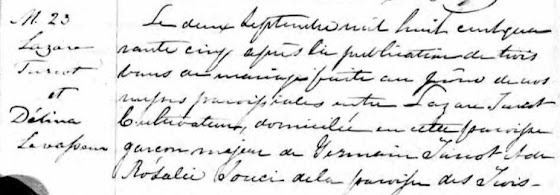 M. 23
Lazare
Turcot
et
Délina
Levasseur
Le deux Septembre mil huit cent qua
rante cinq, après la publication de trois
bans de mariage faite au prône de nos
messes paroissiales entre Lazare Turcot
Cultivateur, domicilié en cette paroisse
garçon majeur de Germain Turcot & de
Rosalie Souci de la paroisse des Trois-